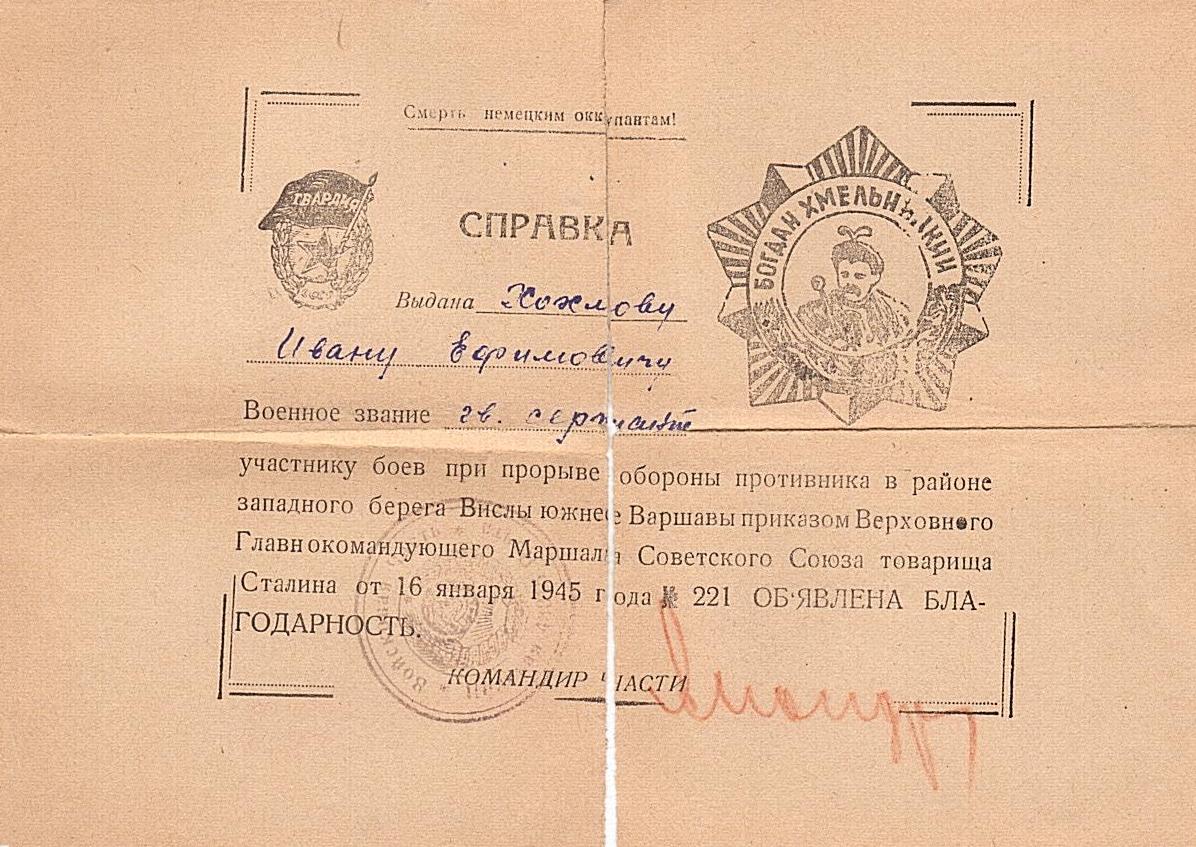 Смерть немецким оккупантам!
ГВАРДИЯ
БОГДАН ХМЕЛЬНИЦКИЙ
СПРАВКА
Выдана Хохлову
Ивану Ефимовичу
Военное звание гв. сержант
участнику боев при прорыве обороны противника в районе
западного берега Вислы южнее Варшавы приказом Верховного
Главнокомандующего Маршала Советского Союза товарища
Сталина от 16 января 1945 года № 221 ОБ'ЯВЛЕНА БЛА-
ГОДАРНОСТЬ.
КОМАНДИР ЧАСТИ